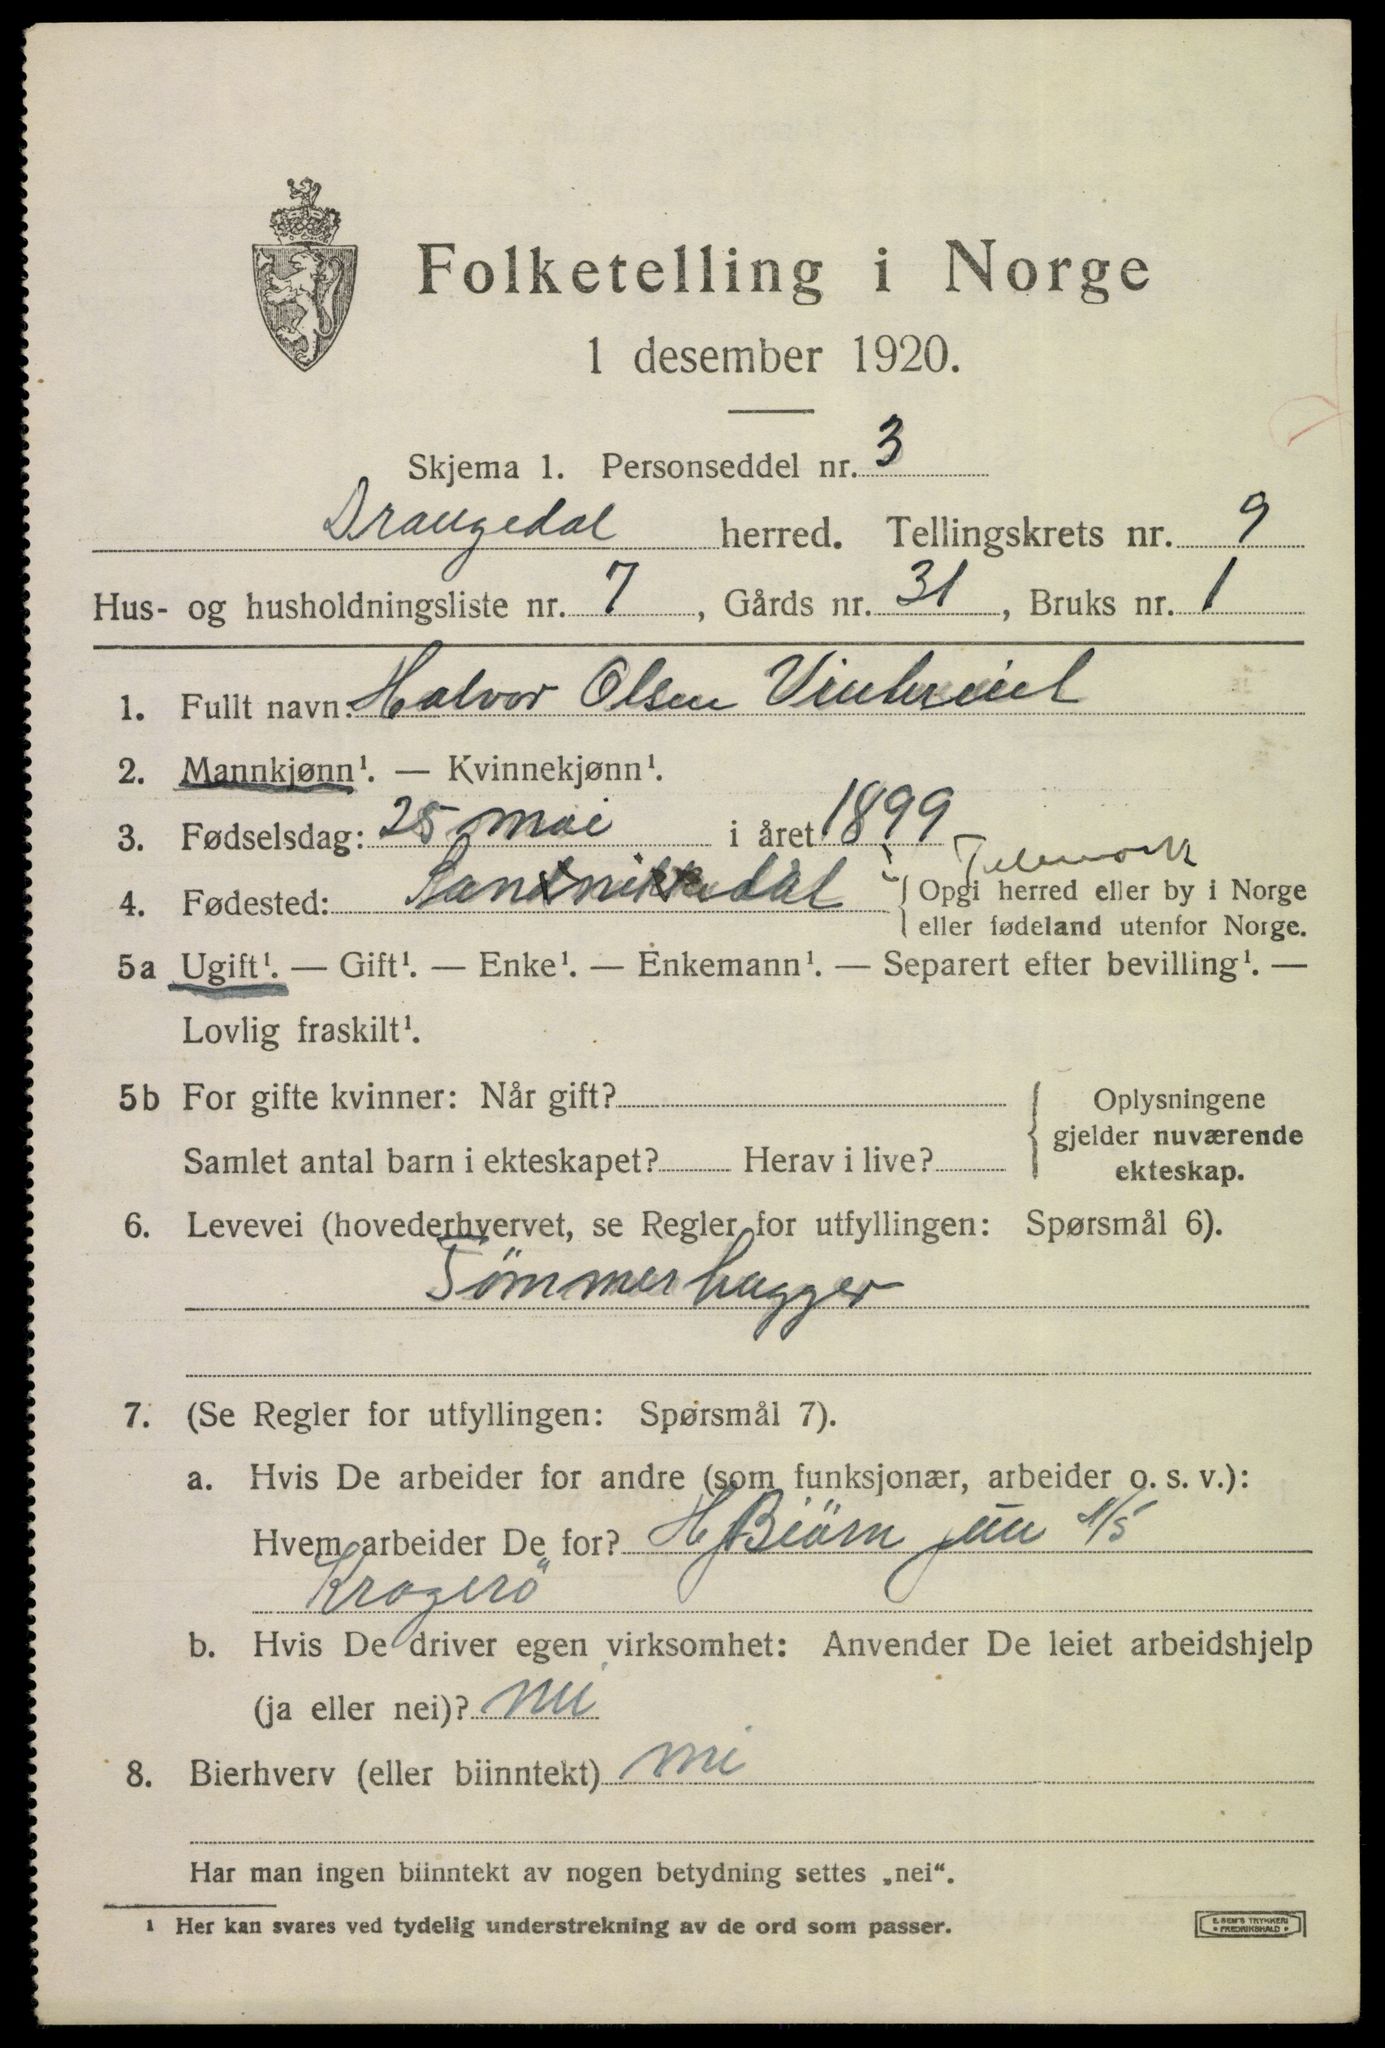 Folketelling i Norge
1 desember 1920.
Skjema 1. Personseddel nr. 3
Drangedal herred. Tellingskrets nr. 9
Hus- og husholdningsliste nr. 7, Gårds nr. 31, Bruks nr. 1
1. Fullt navn: Halvor Olsen
2. Mannkjønn¹. — Kvinnekjønn¹.
3. Fødselsdag: 25 mai i året 1899
Telemark
4. Fødested: Sannikedal { Opgi herred eller by i Norge
eller fødeland utenfor Norge.
5a Ugift¹. — Gift¹. — Enke¹. — Enkemann¹. — Separert efter bevilling¹. —
Lovlig fraskilt¹.
5b For gifte kvinner: Når gift?
Samlet antal barn i ekteskapet? Herav i live?
{ Oplysningene
gjelder nuværende
ekteskap.
6. Levevei (hovederhvervet, se Regler for utfyllingen: Spørsmål 6).
Tömmerhugger
7. (Se Regler for utfyllingen: Spørsmål 7).
a. Hvis De arbeider for andre (som funksjonær, arbeider o. s. v.):
Hvem arbeider De for? H Biörn jun A/S
Kragerö
b. Hvis De driver egen virksomhet: Anvender De leiet arbeidshjelp
(ja eller nei)? nei
8. Bierhverv (eller biinntekt) nei
Har man ingen biinntekt av nogen betydning settes „nei“.
¹ Her kan svares ved tydelig understrekning av de ord som passer.
E. SEM'S TRYKKERI
FREDRIKSHALD